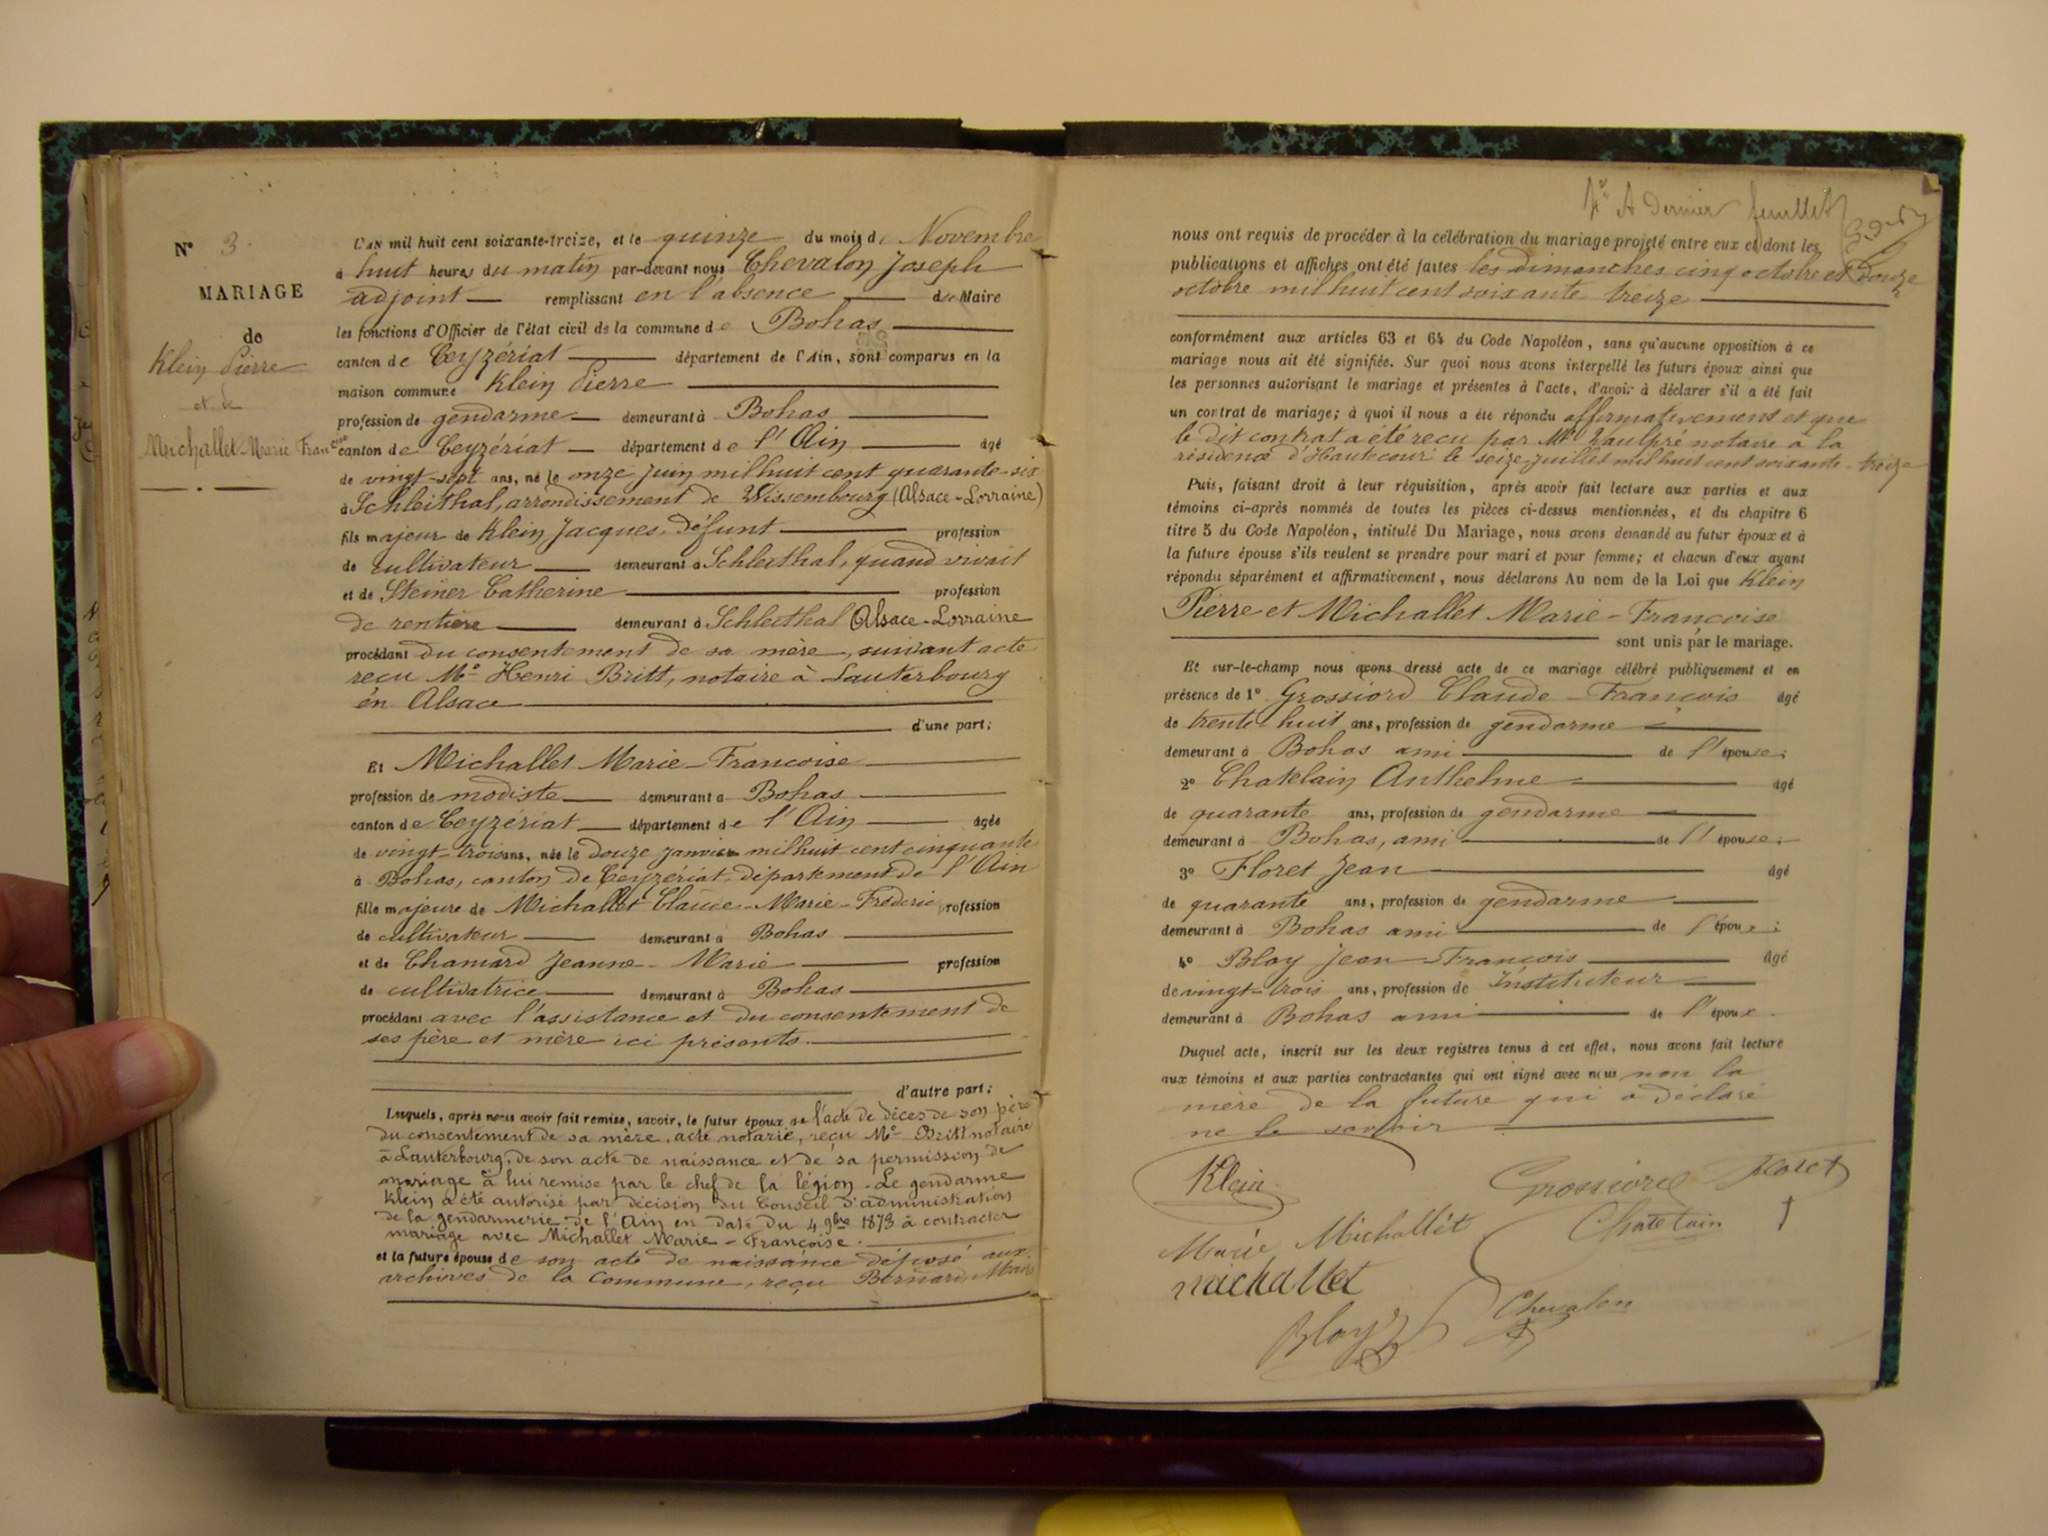 N° 3.
MARIAGE
de
Klein Pierre
et de
Michallet Marie Francoise
L'AN mil huit cent soixante-treize, et le quinze du mois de Novembre
à huit heures du matin par-devant nous Chevalon Joseph
adjoint remplissant en l'absence du Maire
les fonctions d'Officier de l'état civil de la commune de Bohas
canton de Ceyzériat département de l'Ain, sont comparus en la
maison commune Klein Pierre
profession de gendarme demeurant à Bohas
canton de Ceyzériat département de l'Ain âgé
de vingt-sept ans, né le onze juin mil huit cent quarante-six
à Schleithal, arrondissement de Wissembourg (Alsace-Lorraine)
fils majeur de Klein Jacques, défunt profession
de cultivateur demeurant à Schleithal, quand vivait
et de Steiner Catherine profession
de rentière demeurant à Schleithal Alsace-Lorraine
procédant du consentement de sa mère, suivant acte
reçu Me Henri Britt, notaire à Lauterbourg
en Alsace
d'une part;
Et Michallet Marie-Francoise
profession de modiste demeurant à Bohas
canton de Ceyzériat département de l'Ain âgée
de vingt-trois ans, née le douze janvier mil huit cent cinquante
à Bohas, canton de Ceyzeriat, département de l'Ain
fille majeure de Michallet Claude-Marie-Fréderic profession
de cultivateur demeurant à Bohas
et de Chamard Jeanne-Marie profession
de cultivatrice demeurant à Bohas
procédant avec l'assistance et du consentement de
ses père et mère ici présents.
d'autre part;
Lesquels, après nous avoir fait remise, savoir, le futur époux de l'acte de décès de son père
du consentement de sa mère, acte notarié, reçu Me Britt notaire
à Lauterbourg, de son acte de naissance et de sa permission de
mariage à lui remise par le chef de la légion. Le gendarme
Klein a été autorisé par décision du Conseil d'administration
de la gendarmerie de l'Ain en date du 4 9bre 1873 à contracter
mariage avec Michallet Marie-Françoise.
et la future épouse de son acte de naissance déposé aux
archives de la Commune, reçu Bernard, Maire
Ne A Dernier feuillet
nous ont requis de procéder à la célébration du mariage projeté entre eux et dont les
publications et affiches ont été faites les dimanches cinq octobre et Douze
octobre mil huit cent soixante treize
conformément aux articles 63 et 64 du Code Napoléon, sans qu'aucune opposition à ce
mariage nous ait été signifiée. Sur quoi nous avons interpellé les futurs époux ainsi que
les personnes autorisant le mariage et présentes à l'acte, d'avoir à déclarer s'il a été fait
un contrat de mariage; à quoi il nous a été répondu affirmativement et que
le dit contrat a été reçu par Me Vaulpré notaire à la
résidence d'Hautecour le seize juillet mil huit cent soixante-treize
Puis, faisant droit à leur réquisition, après avoir fait lecture aux parties et aux
témoins ci-après nommés de toutes les pièces ci-dessus mentionnées, et du chapitre 6
titre 5 du Code Napoléon, intitulé Du Mariage, nous avons demandé au futur époux et à
la future épouse s'ils veulent se prendre pour mari et pour femme; et chacun d'eux ayant
répondu séparément et affirmativement, nous déclarons Au nom de la Loi que Klein
Pierre et Michallet Marie-Francoise
sont unis par le mariage.
Et sur-le-champ nous avons dressé acte de ce mariage célébré publiquement et en
présence de 1° Grossiord Claude-François âgé
de trente huit ans, profession de gendarme
demeurant à Bohas ami de l'épouse;
2° Chatelain Anthelme âgé
de quarante ans, profession de gendarme
demeurant à Bohas, ami de l'épouse;
3° Floret Jean âgé
de quarante ans, profession de gendarme
demeurant à Bohas ami de l'époux;
4° Bloy Jean-François âgé
de vingt-trois ans, profession de Instituteur
demeurant à Bohas ami de l'époux.
Duquel acte, inscrit sur les deux registres tenus à cet effet, nous avons fait lecture
aux témoins et aux parties contractantes qui ont signé avec nous non la
mère de la future qui a déclaré
ne le savoir
Klein Grossiord Floret
Marie Michallet Chatelain
michallet
Bloy Chevalon